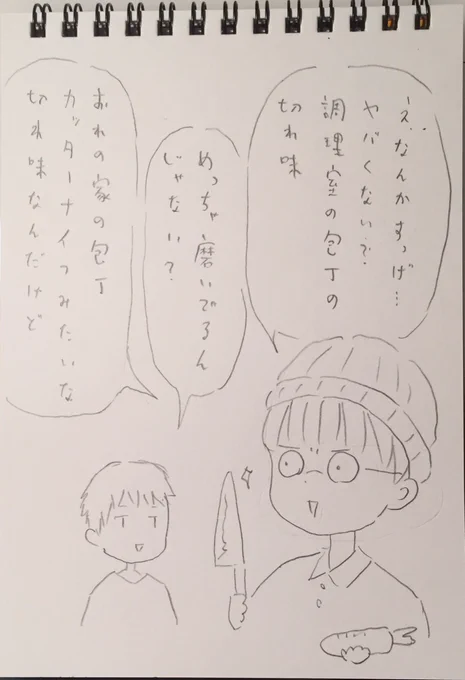 え、なんかすっげ…
ヤバくない?
調理室の包丁の
切れ味
めっちゃ磨いでるん
じゃない?
おれの家の包丁
カッターナイフみたいな
切れ味なんだけど